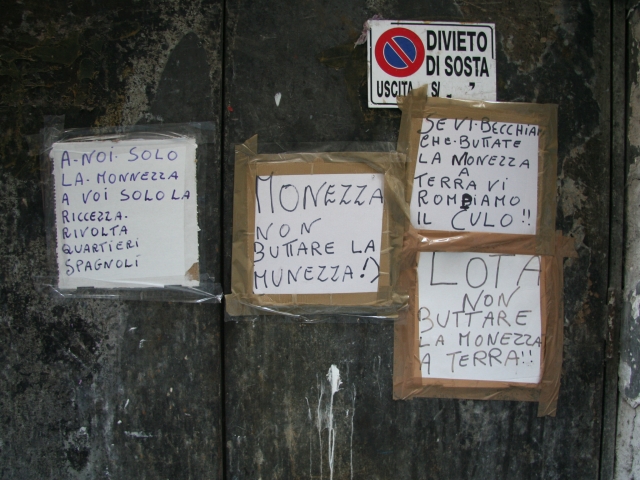 DIVIETO
DI SOSTA
USCITA
A-NOI-SOLO
LA-MONNEZZA
A VOI SOLO LA
RICCEZZA.
RIVOLTA
QUARTIERI
SPAGNOLI
MONEZZA
NON
BUTTARE LA
MUNEZZA!)
SE VI-BECCHIAM
CHE-BUTTATE
LA MONEZZA
A
TERRA VI
ROMPIAMO
IL CULO!!
LOTA
NON
BUTTARE
LA MONEZZA
A TERRA!!